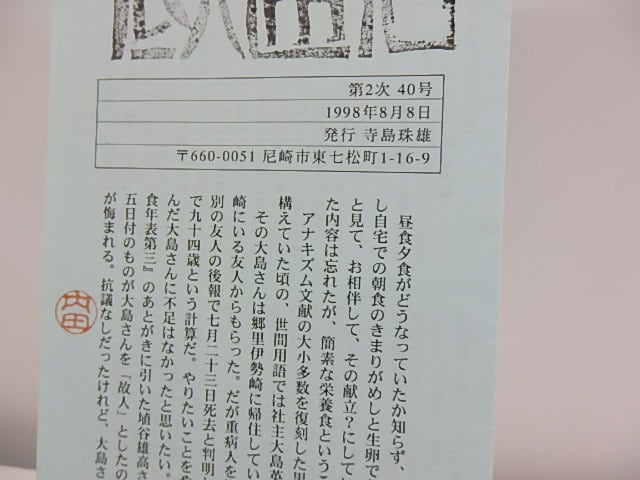 第2次 40号
1998年8月8日
発行 寺島珠雄
〒660-0051 尼崎市東七松町1-16-9
昼食夕食がどうなっていたか知らず、
し自宅での朝食のきまりがめしと生卵で
と見て、お相伴して、その献立?にして
た内容は忘れたが、簡素な栄養食というこ
アナキズム文献の大小多数を復刻した男
構えていた頃の、世間用語では社主大島英
その大島さんは郷里伊勢崎に帰住してい
崎にいる友人からもらった。だが重病人を
別の友人の後報で七月二十三日死去と判明し
で九十四歳という計算だ。やりたいことを
んだ大島さんに不足はなかったと思いたい。
食年表第三』のあとがきに引いた埴谷雄高さ
五日付のものが大島さんを「故人」としたの
が悔まれる。抗議なしだったけれど、大島さ
内田